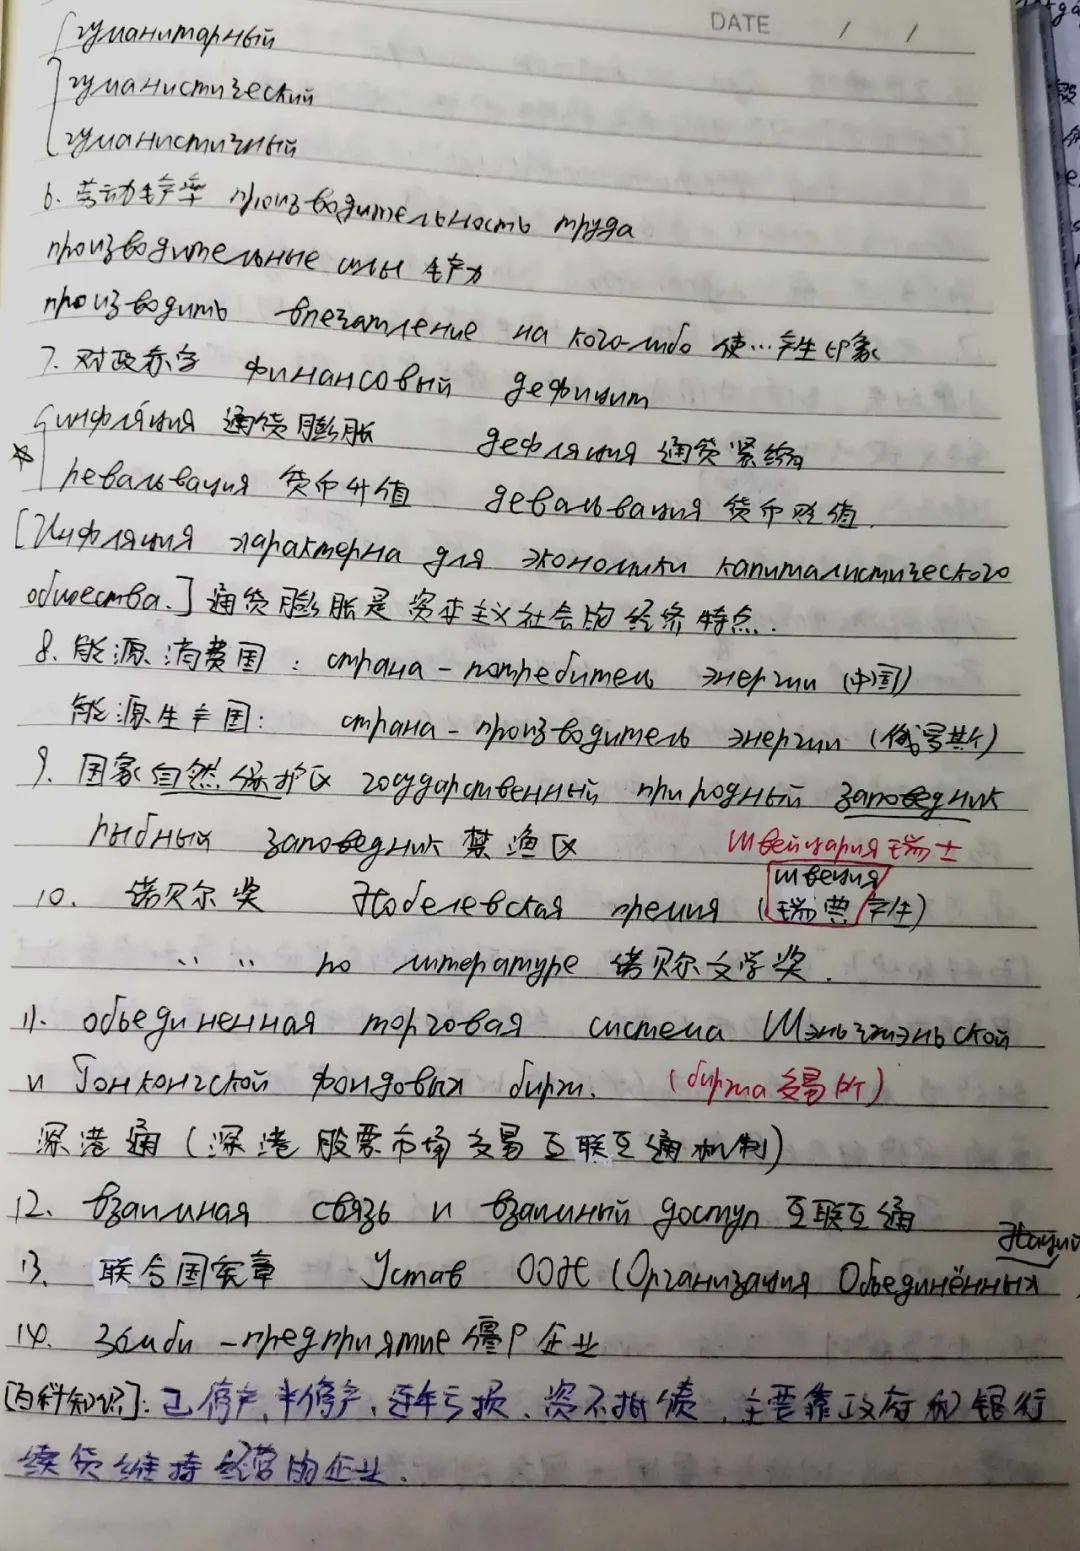 DATE / /
гуманитарный
гуманистический
гуманистичный
6. 劳动生产率 производительность труда
производительные силы 生产力
производить впечатление на кого-либо 使…产生印象
7. 财政赤字 финансовый дефицит
инфля́ция 通货膨胀 дефляция 通货紧缩
☆ ревальвация 货币升值 девальвация 货币贬值.
[Инфляция характерна для экономики капиталистического
общества.] 通货膨胀是资本主义社会的经济特点.
8. 能源消费国: страна-потребитель энергии (中国)
能源生产国: страна-производитель энергии (俄罗斯)
9. 国家自然保护区 государственный природный заповедник
рыбный заповедник 禁渔区
Швейцария 瑞士
швеция
10. 诺贝尔奖 Нобелевская премия (瑞典/产生)
〃 〃 по литературе 诺贝尔文学奖.
11. объединенная торговая система Шэньчжэньской
и Гонконгской фондовых бирж. (биржа 交易所)
深港通 (深港股票市场交易互联互通机制)
12. взаимная связь и взаимный доступ 互联互通
Наций
13. 联合国宪章 Устав ООН (Организация Объединённых
14. Зомби-предприятие 僵尸企业
[百科知识]: 已停产、半停产、连年亏损、资不抵债, 主要靠政府和银行
续贷维持经营的企业.